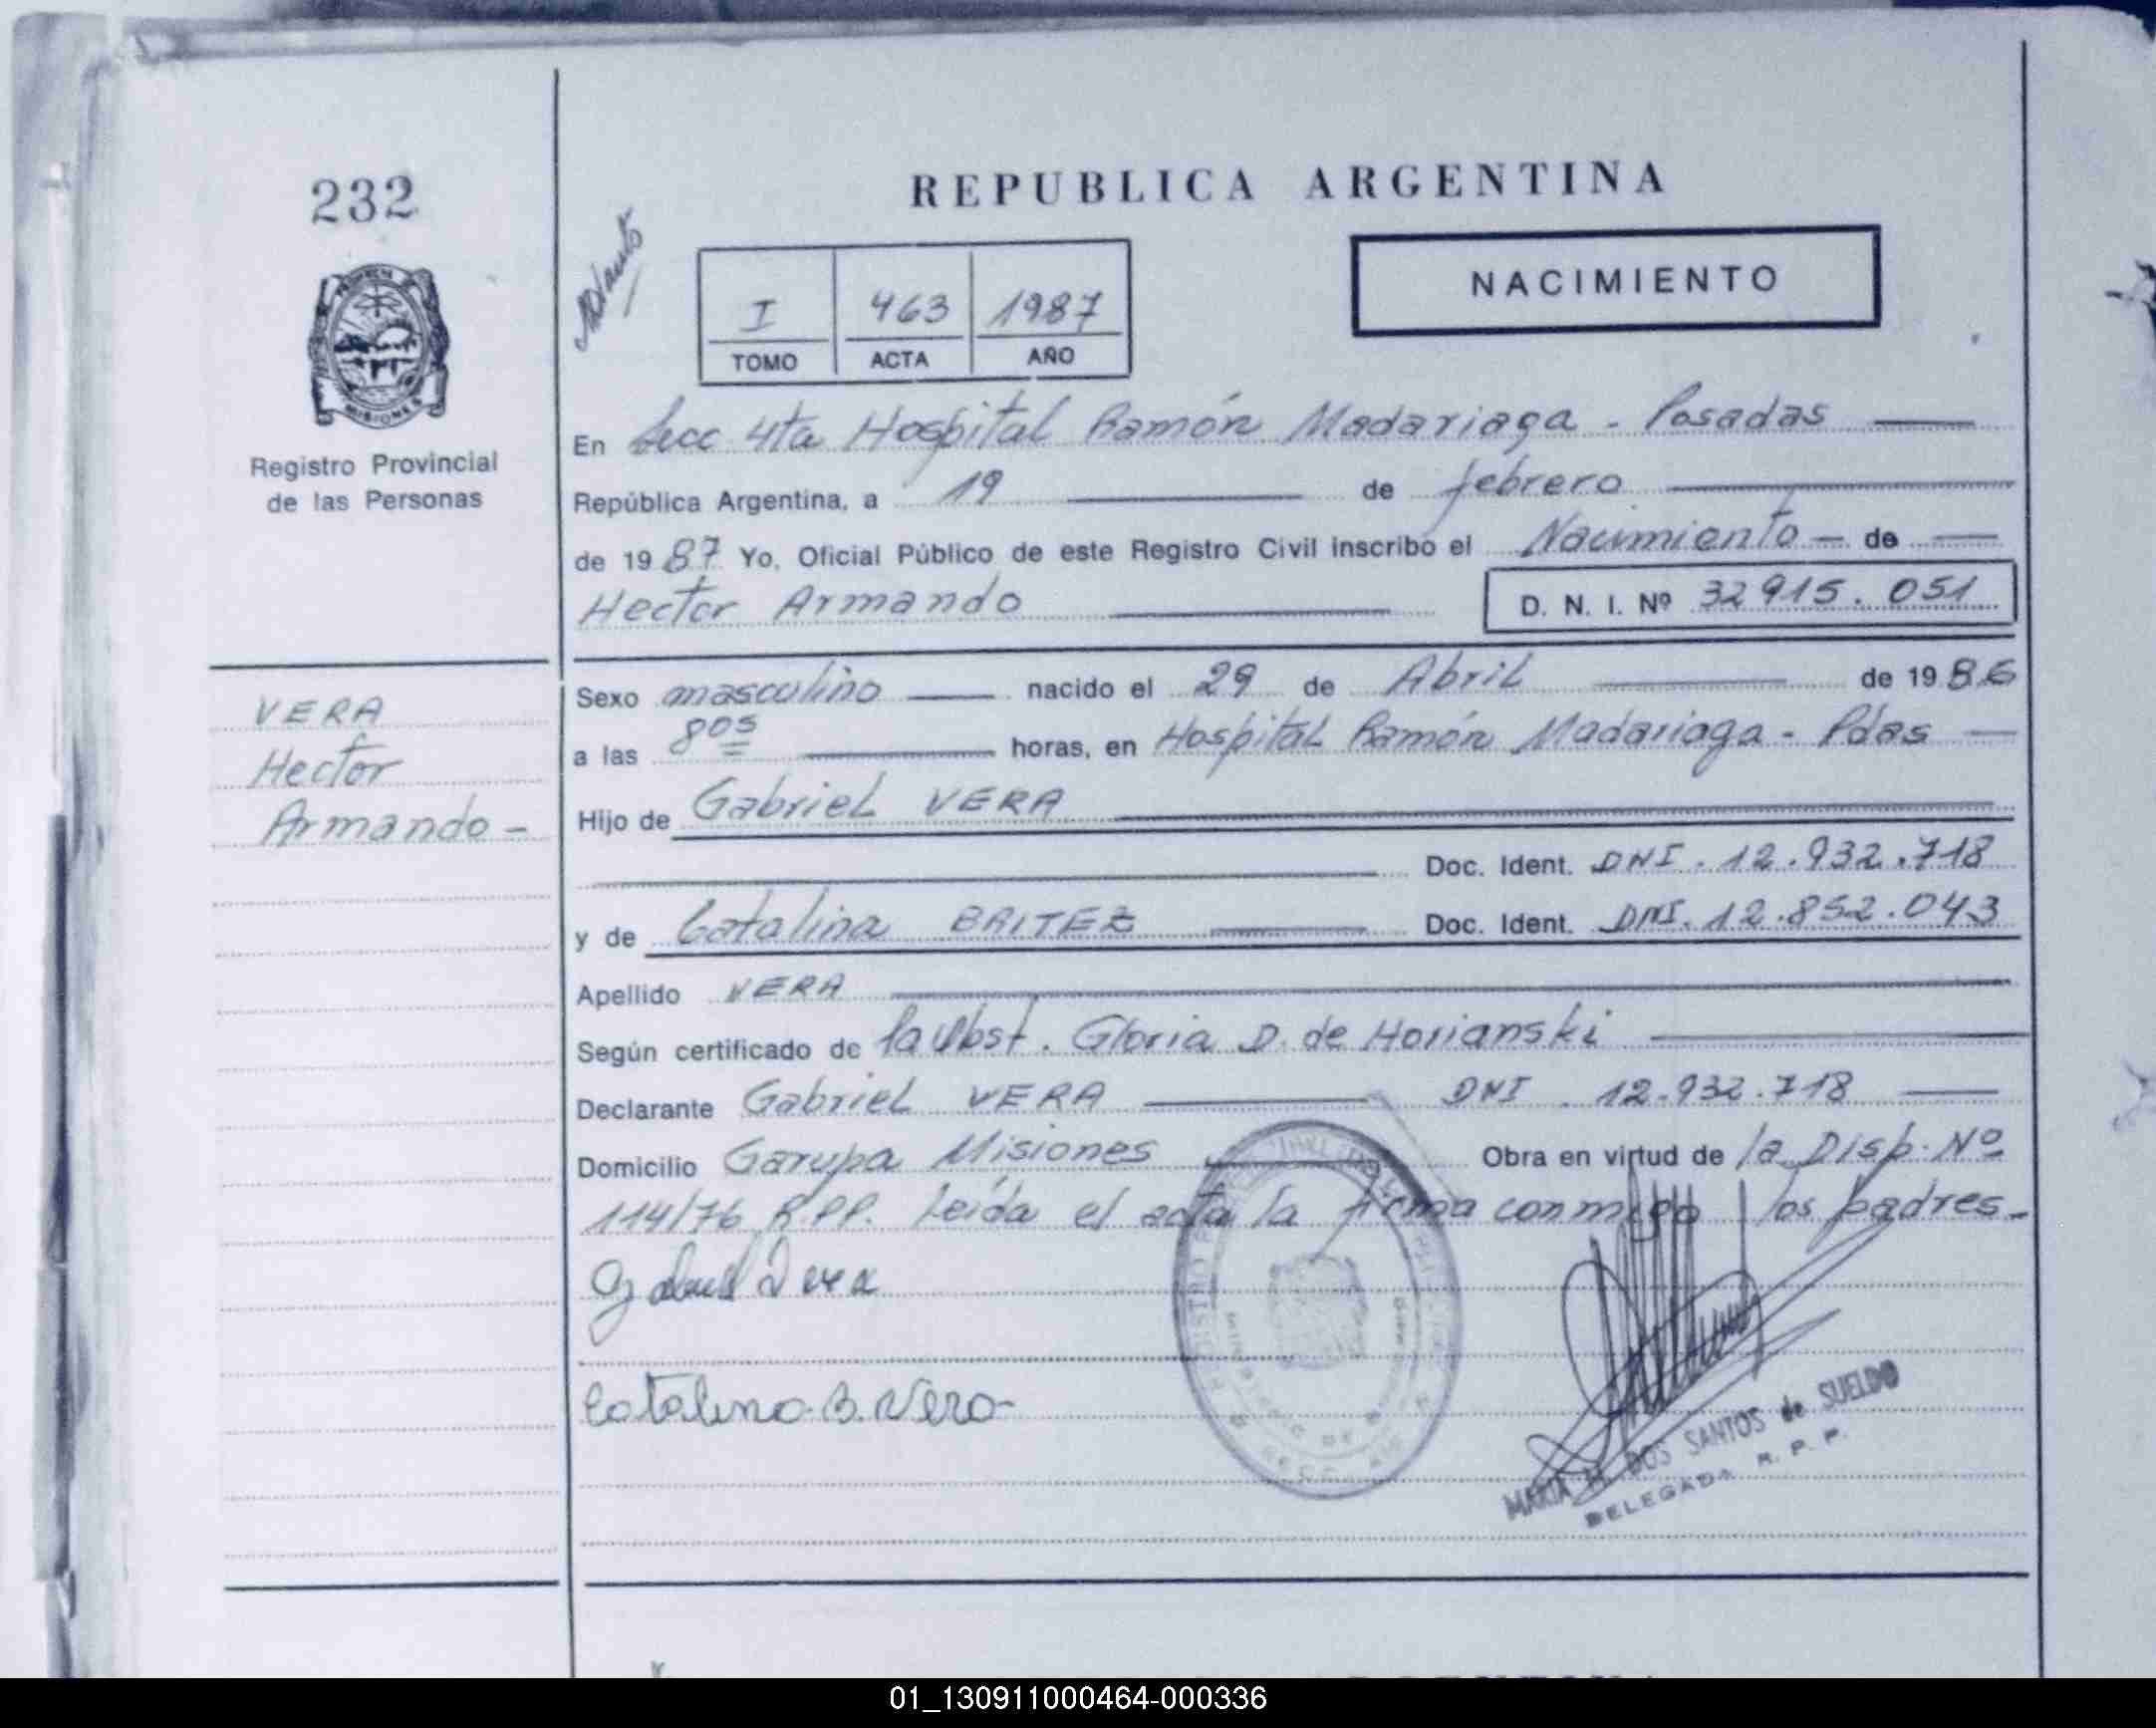 232
REPUBLICA ARGENTINA
NACIMIENTO
I 463 1987
TOMO ACTA AÑO
Registro Provincial
de las Personas
En Secc 4ta Hospital Ramón Madariaga - Posadas
República Argentina, a 19 de febrero
de 1987 Yo, Oficial Público de este Registro Civil inscribo el Nacimiento - de
Hector Armando D. N. I. Nº 32915.051
VERA
Hector
Armando -
Sexo masculino nacido el 29 de Abril de 1986
a las 8 05 horas, en Hospital Ramón Madariaga - Pdas
Hijo de Gabriel VERA
Doc. Ident. DNI. 12.932.718
y de Catalina BRITEZ Doc. Ident. DNI. 12.852.043
Apellido VERA
Según certificado de la Obst. Gloria D. de Horianski
Declarante Gabriel VERA DNI. 12.932.718
Domicilio Garupa Misiones Obra en virtud de la Disp. Nº
114/76 R.PP. Leída el acta la firma conmigo los padres -
Gabriel Vera
Catalina B. Vera
MARIA H. DOS SANTOS de SUELDO
DELEGADA R. P. P.
01_130911000464-000336